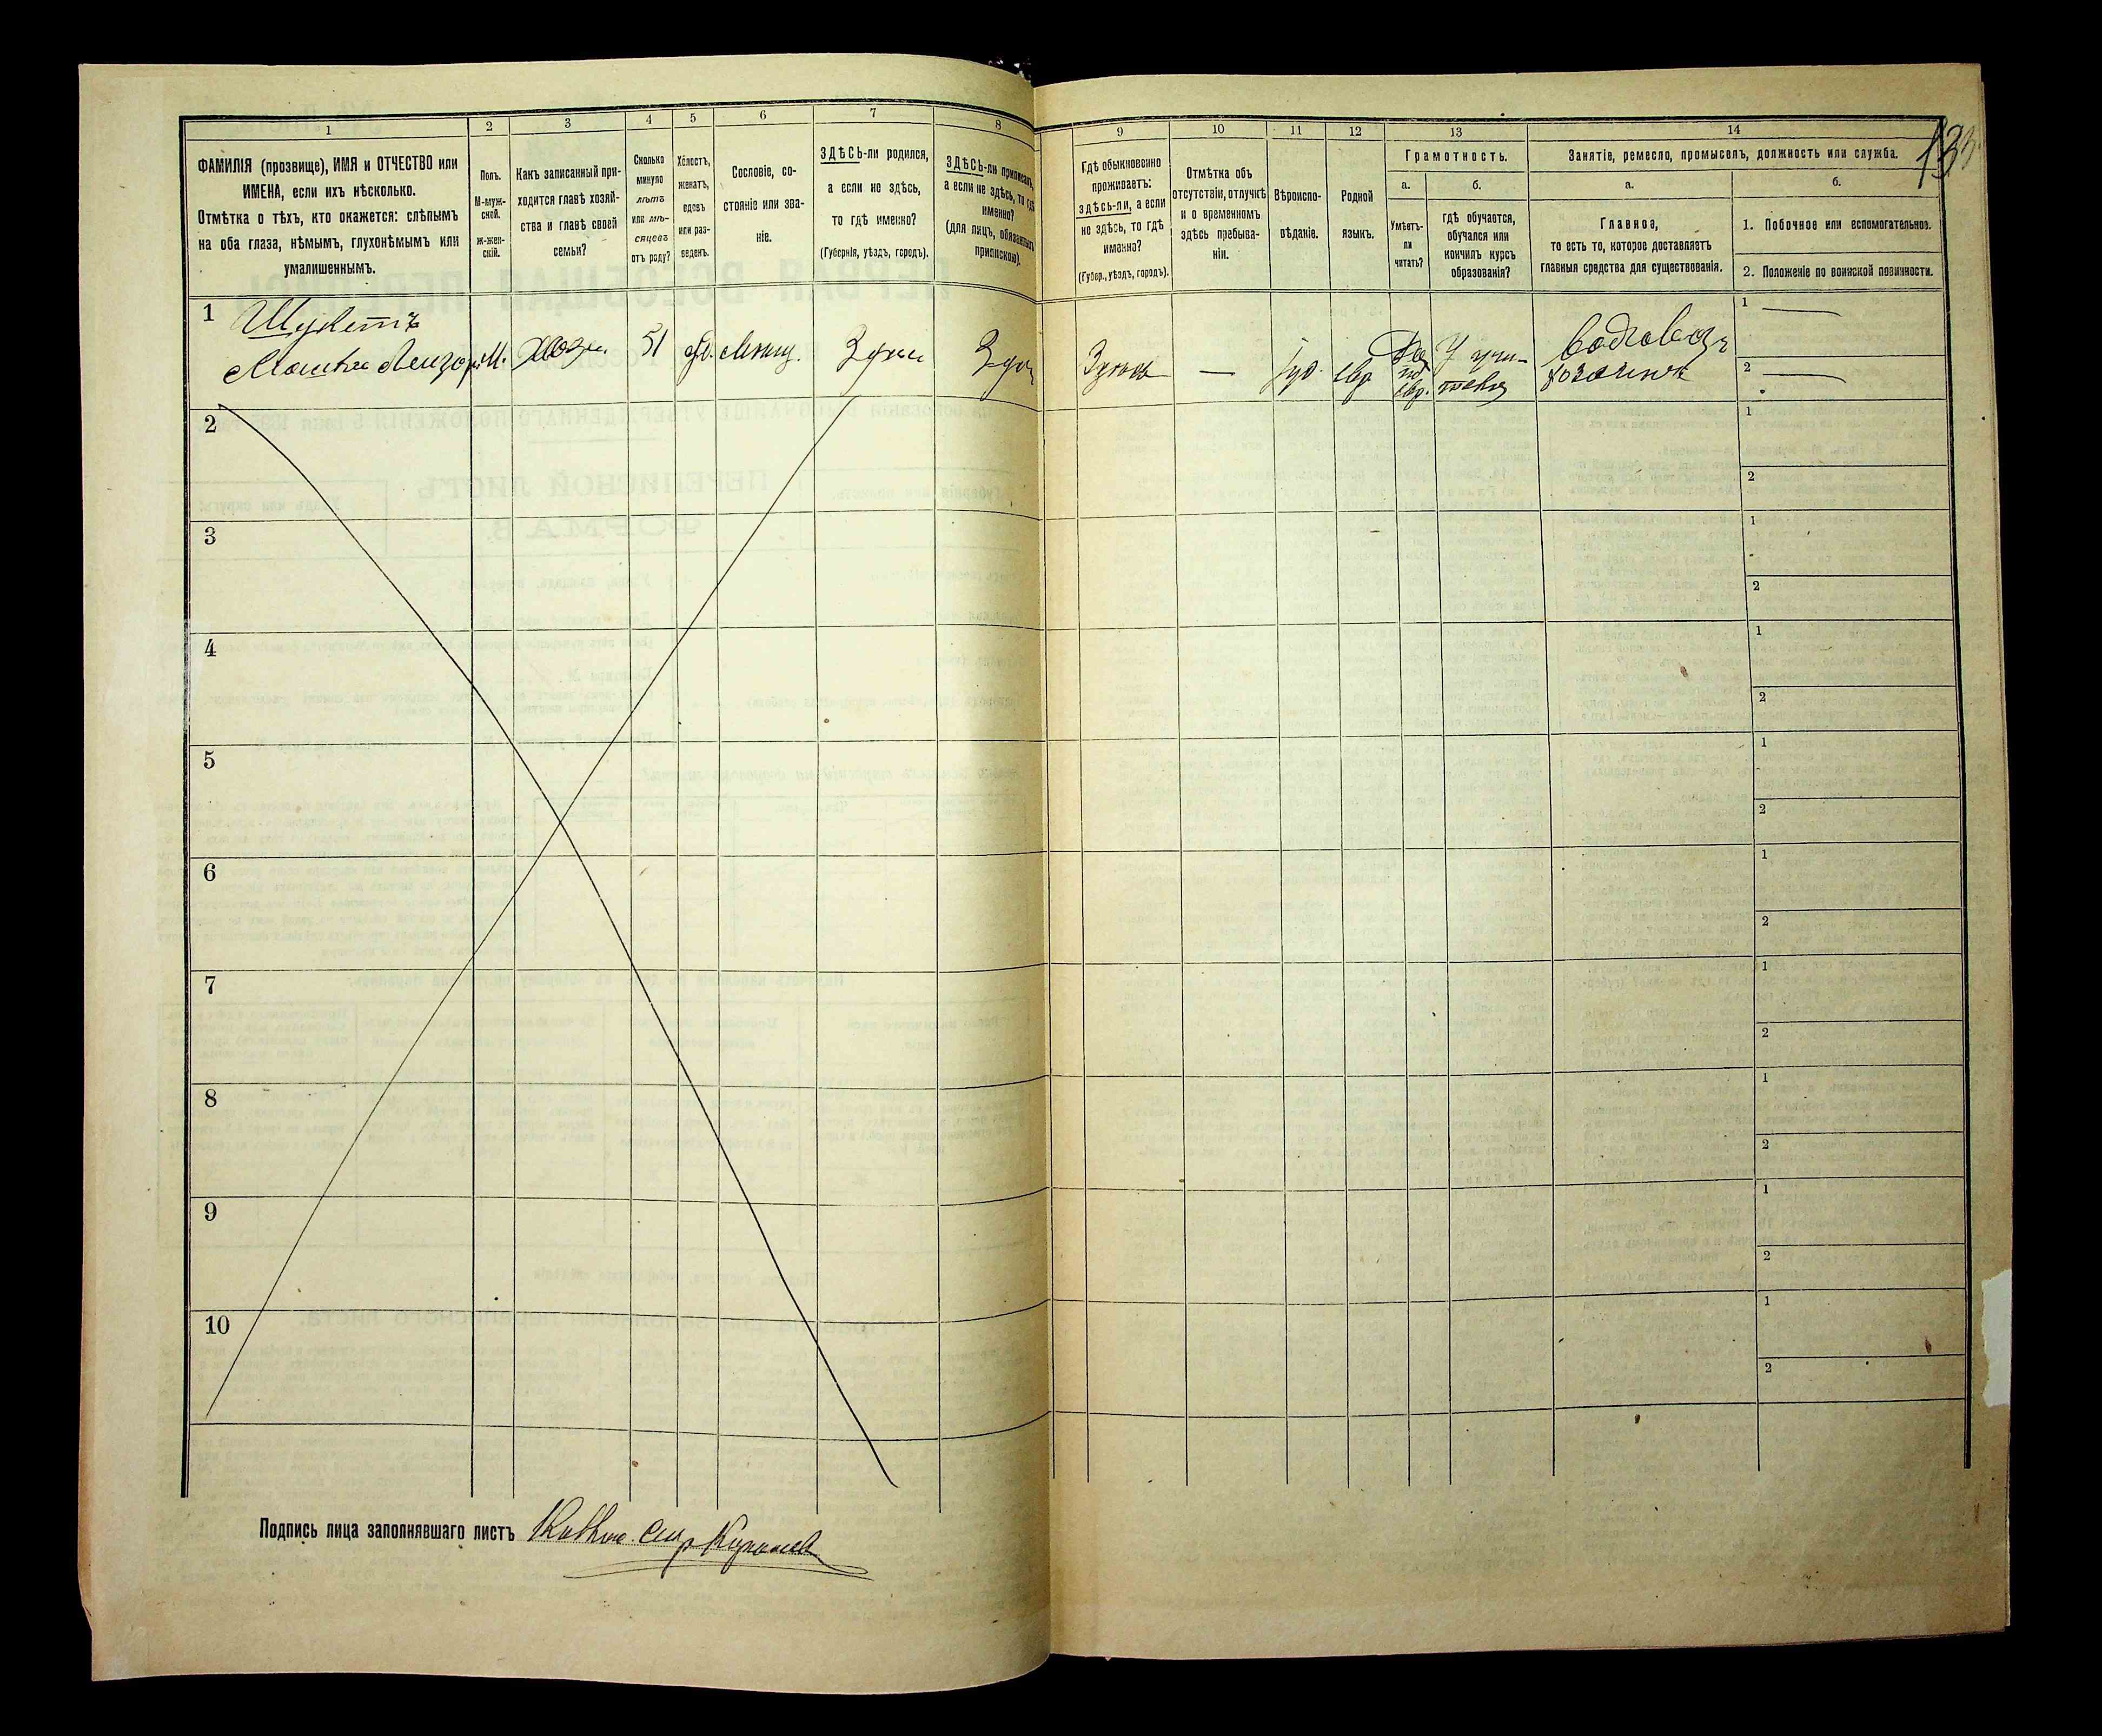 1
2
3
4
5
6
7
8
ФАМИЛІЯ (прозвище), ИМЯ и ОТЧЕСТВО или
ИМЕНА, если ихъ нѣсколько.
Отмѣтка о тѣхъ, кто окажется: слѣпымъ
на оба глаза, нѣмымъ, глухонѣмымъ или
умалишеннымъ.
Полъ.
М-муж-
ской.
ж-жен-
скій.
Какъ записанный при-
ходится главѣ хозяй-
ства и главѣ своей
семьи?
Сколько
минуло
лѣтъ
или мѣ-
сяцевъ
отъ роду?
Холостъ,
женатъ,
вдовъ
или раз-
веденъ.
Сословіе, со-
стояніе или зва-
ніе.
ЗДѢСЬ-ли родился,
а если не здѣсь,
то гдѣ именно?
(Губернія, уѣздъ, городъ).
ЗДѢСЬ-ли приписанъ,
а если не здѣсь, то гдѣ
именно?
(для лицъ, обязанныхъ
припиской).
1
М.
51
2
3
4
5
6
7
8
9
10
Подпись лица заполнявшаго листъ
9
10
11
12
13
14
Гдѣ обыкновенно
проживаетъ:
здѣсь-ли, а если
не здѣсь, то гдѣ
именно?
(Губер., уѣздъ, городъ).
Отмѣтка объ
отсутствіи, отлучкѣ
и о временномъ
здѣсь пребыва-
ніи.
Вѣроиспо-
вѣданіе.
Родной
языкъ.
Грамотность.
а.
б.
Умѣетъ-
ли
читать?
гдѣ обучается,
обучался или
кончилъ курсъ
образованія?
Занятіе, ремесло, промыселъ, должность или служба.
а.
б.
Главное,
то есть то, которое доставляетъ
главныя средства для существованія.
1. Побочное или вспомогательное.
2. Положеніе по воинской повинности.
—
Іуд.
Евр
Да
по
евр.
У учи-
теля
Водовозъ
хозяинъ
1 —
2 —
1
2
1
2
1
2
1
2
1
2
1
2
1
2
1
2
1
2